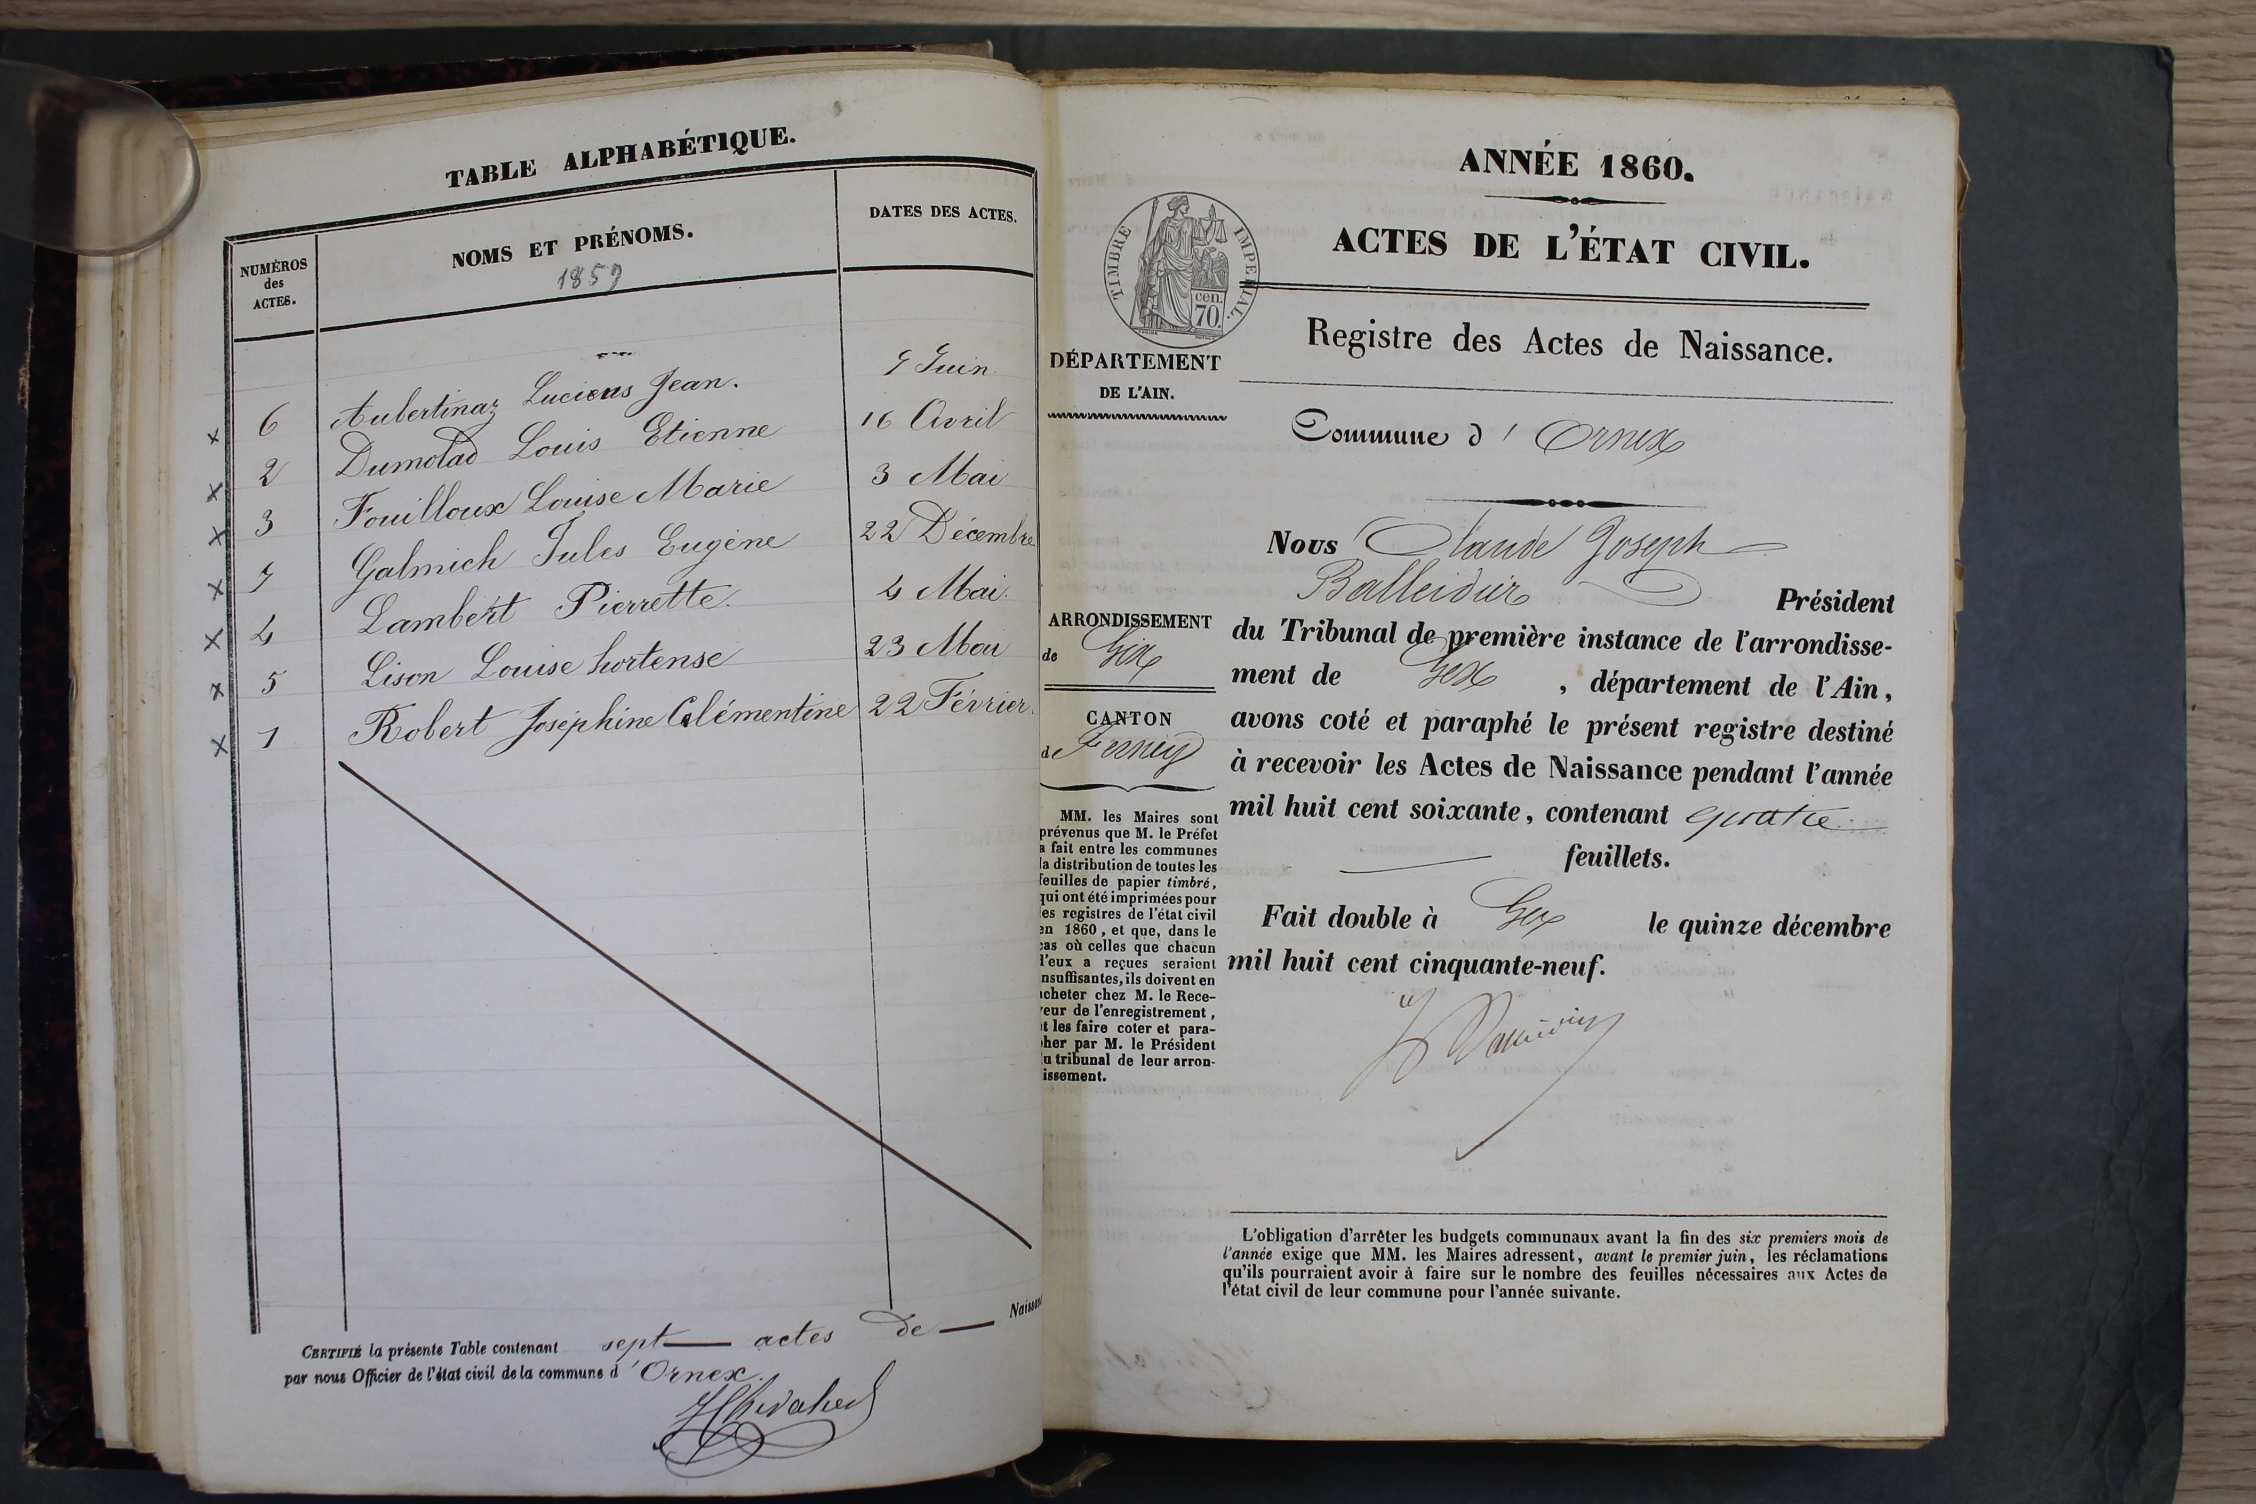 TABLE ALPHABÉTIQUE.
NUMÉROS des ACTES.
NOMS ET PRÉNOMS.
1859
DATES DES ACTES.
x 6 Aubertinaz Luciens Jean. 9 Juin
x 2 Dumolad Louis Etienne 16 Avril
x 3 Fouilloux Louise Marie 3 Mai
x 7 Galmich Jules Eugène 22 Décembre
x 4 Lambert Pierrette. 4 Mai.
x 5 Lison Louise hortense 23 Mai
x 1 Robert Joséphine Clémentine 22 Février.
CERTIFIÉ la présente Table contenant sept actes de Naissan
par nous Officier de l'état civil de la commune d'Ornex.
ANNÉE 1860.
ACTES DE L'ÉTAT CIVIL.
TIMBRE IMPÉRIAL.
cen.
70.
Registre des Actes de Naissance.
DÉPARTEMENT
DE L'AIN.
Commune d'Ornex
ARRONDISSEMENT
de Gex
CANTON
de Ferney
MM. les Maires sont
prévenus que M. le Préfet
a fait entre les communes
la distribution de toutes les
feuilles de papier timbré,
qui ont été imprimées pour
les registres de l'état civil
en 1860, et que, dans le
cas où celles que chacun
d'eux a reçues seraient
nsuffisantes, ils doivent en
acheter chez M. le Rece-
veur de l'enregistrement,
et les faire coter et para-
pher par M. le Président
du tribunal de leur arron-
issement.
Nous Claude Joseph
Balleidier Président
du Tribunal de première instance de l'arrondisse-
ment de Gex, département de l'Ain,
avons coté et paraphé le présent registre destiné
à recevoir les Actes de Naissance pendant l'année
mil huit cent soixante, contenant quatre
feuillets.
Fait double à Gex le quinze décembre
mil huit cent cinquante-neuf.
L'obligation d'arrêter les budgets communaux avant la fin des six premiers mois de
l'année exige que MM. les Maires adressent, avant le premier juin, les réclamations
qu'ils pourraient avoir à faire sur le nombre des feuilles nécessaires aux Actes de
l'état civil de leur commune pour l'année suivante.